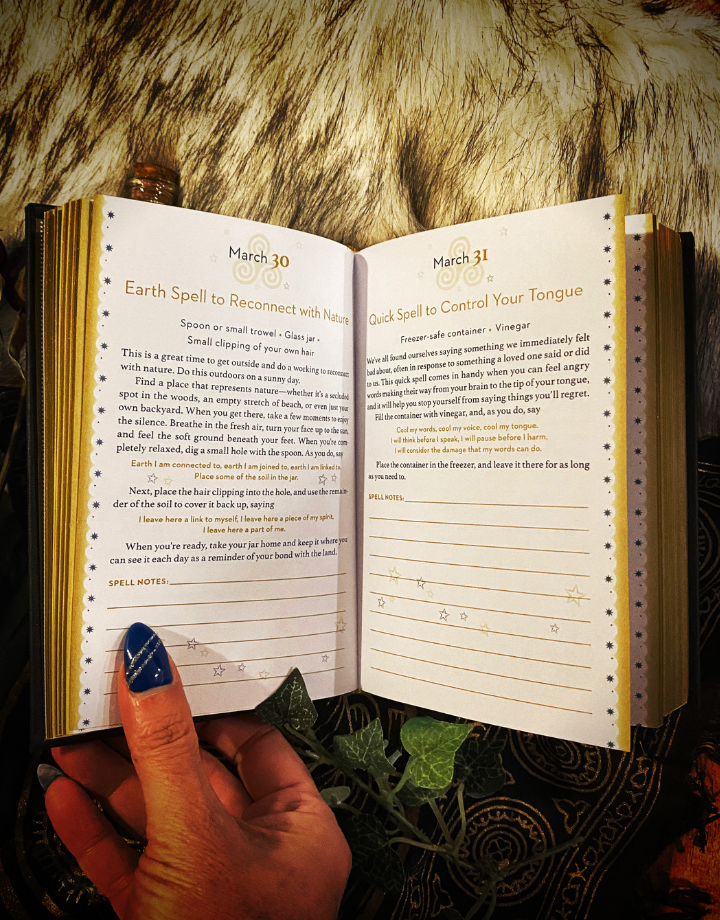 March 30
Earth Spell to Reconnect with Nature
Spoon or small trowel • Glass jar •
Small clipping of your own hair
This is a great time to get outside and do a working to reconnect
with nature. Do this outdoors on a sunny day.
Find a place that represents nature—whether it's a secluded
spot in the woods, an empty stretch of beach, or even just your
own backyard. When you get there, take a few moments to enjoy
the silence. Breathe in the fresh air, turn your face up to the sun,
and feel the soft ground beneath your feet. When you're com-
pletely relaxed, dig a small hole with the spoon. As you do, say
Earth I am connected to, earth I am joined to, earth I am linked to.
Place some of the soil in the jar.
Next, place the hair clipping into the hole, and use the remain-
der of the soil to cover it back up, saying
I leave here a link to myself, I leave here a piece of my spirit,
I leave here a part of me.
When you're ready, take your jar home and keep it where you
can see it each day as a reminder of your bond with the land.
SPELL NOTES:
March 31
Quick Spell to Control Your Tongue
Freezer-safe container • Vinegar
We've all found ourselves saying something we immediately felt
bad about, often in response to something a loved one said or did
to us. This quick spell comes in handy when you can feel angry
words making their way from your brain to the tip of your tongue,
and it will help you stop yourself from saying things you'll regret.
Fill the container with vinegar, and, as you do, say
Cool my words, cool my voice, cool my tongue.
I will think before I speak, I will pause before I harm,
I will consider the damage that my words can do.
Place the container in the freezer, and leave it there for as long
as you need to.
SPELL NOTES: